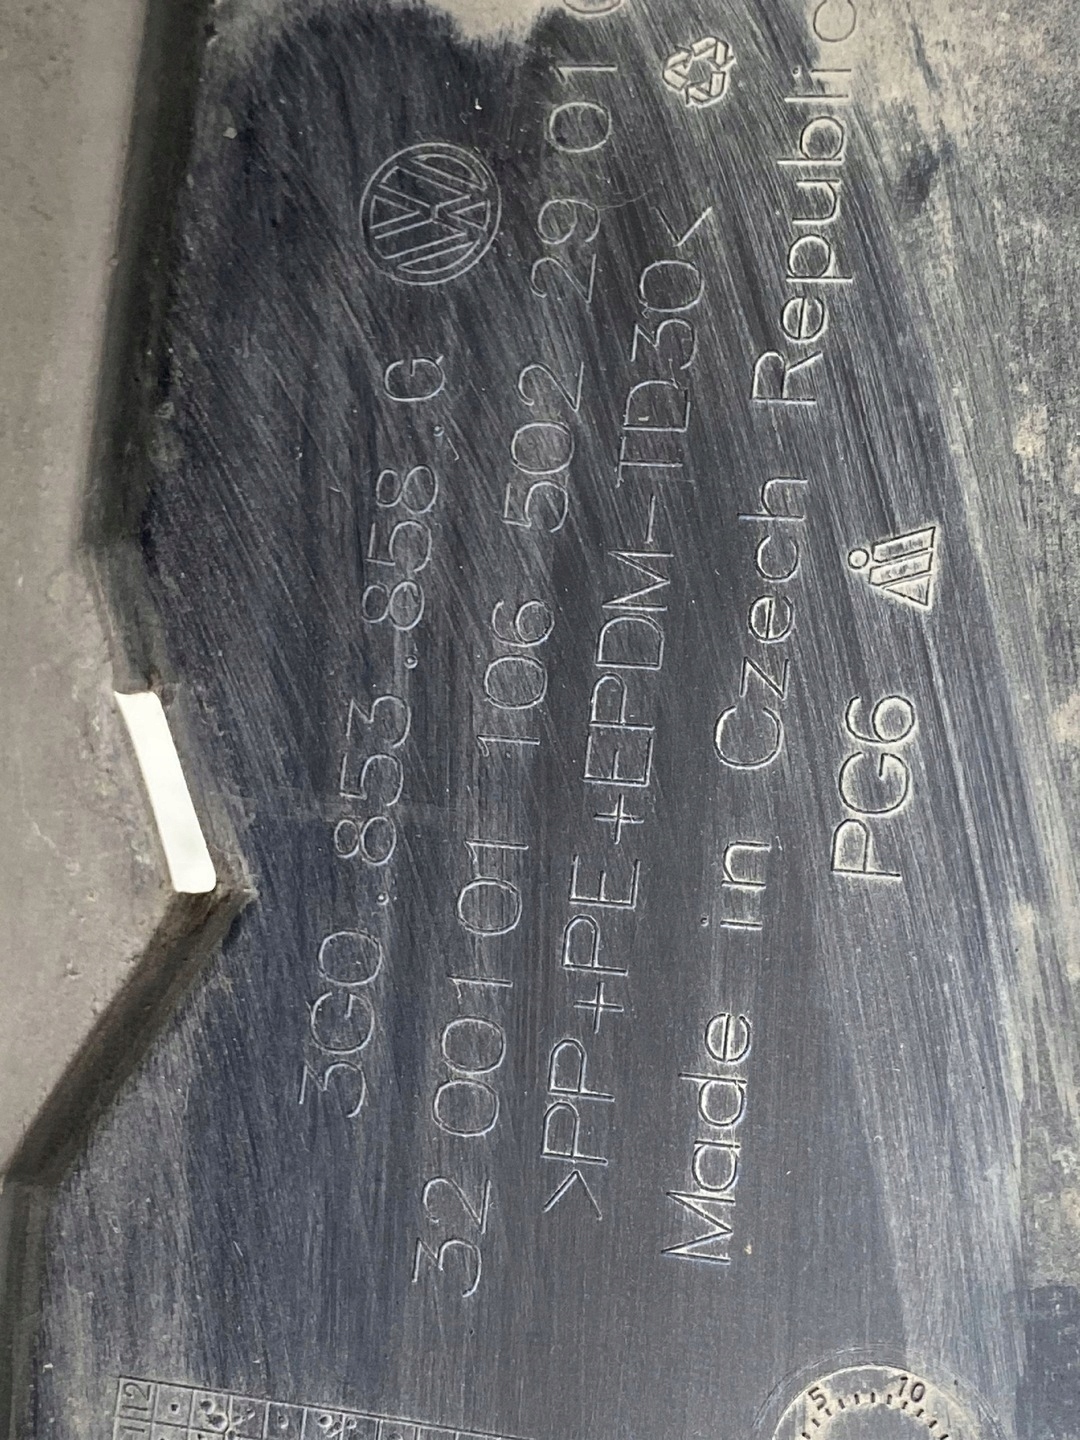 3G0.853.858.G
32 001 01 106 502 29 01
>PP+PE+EPDM-TD30<
Made in Czech Republic
PG6
12
11
5
10